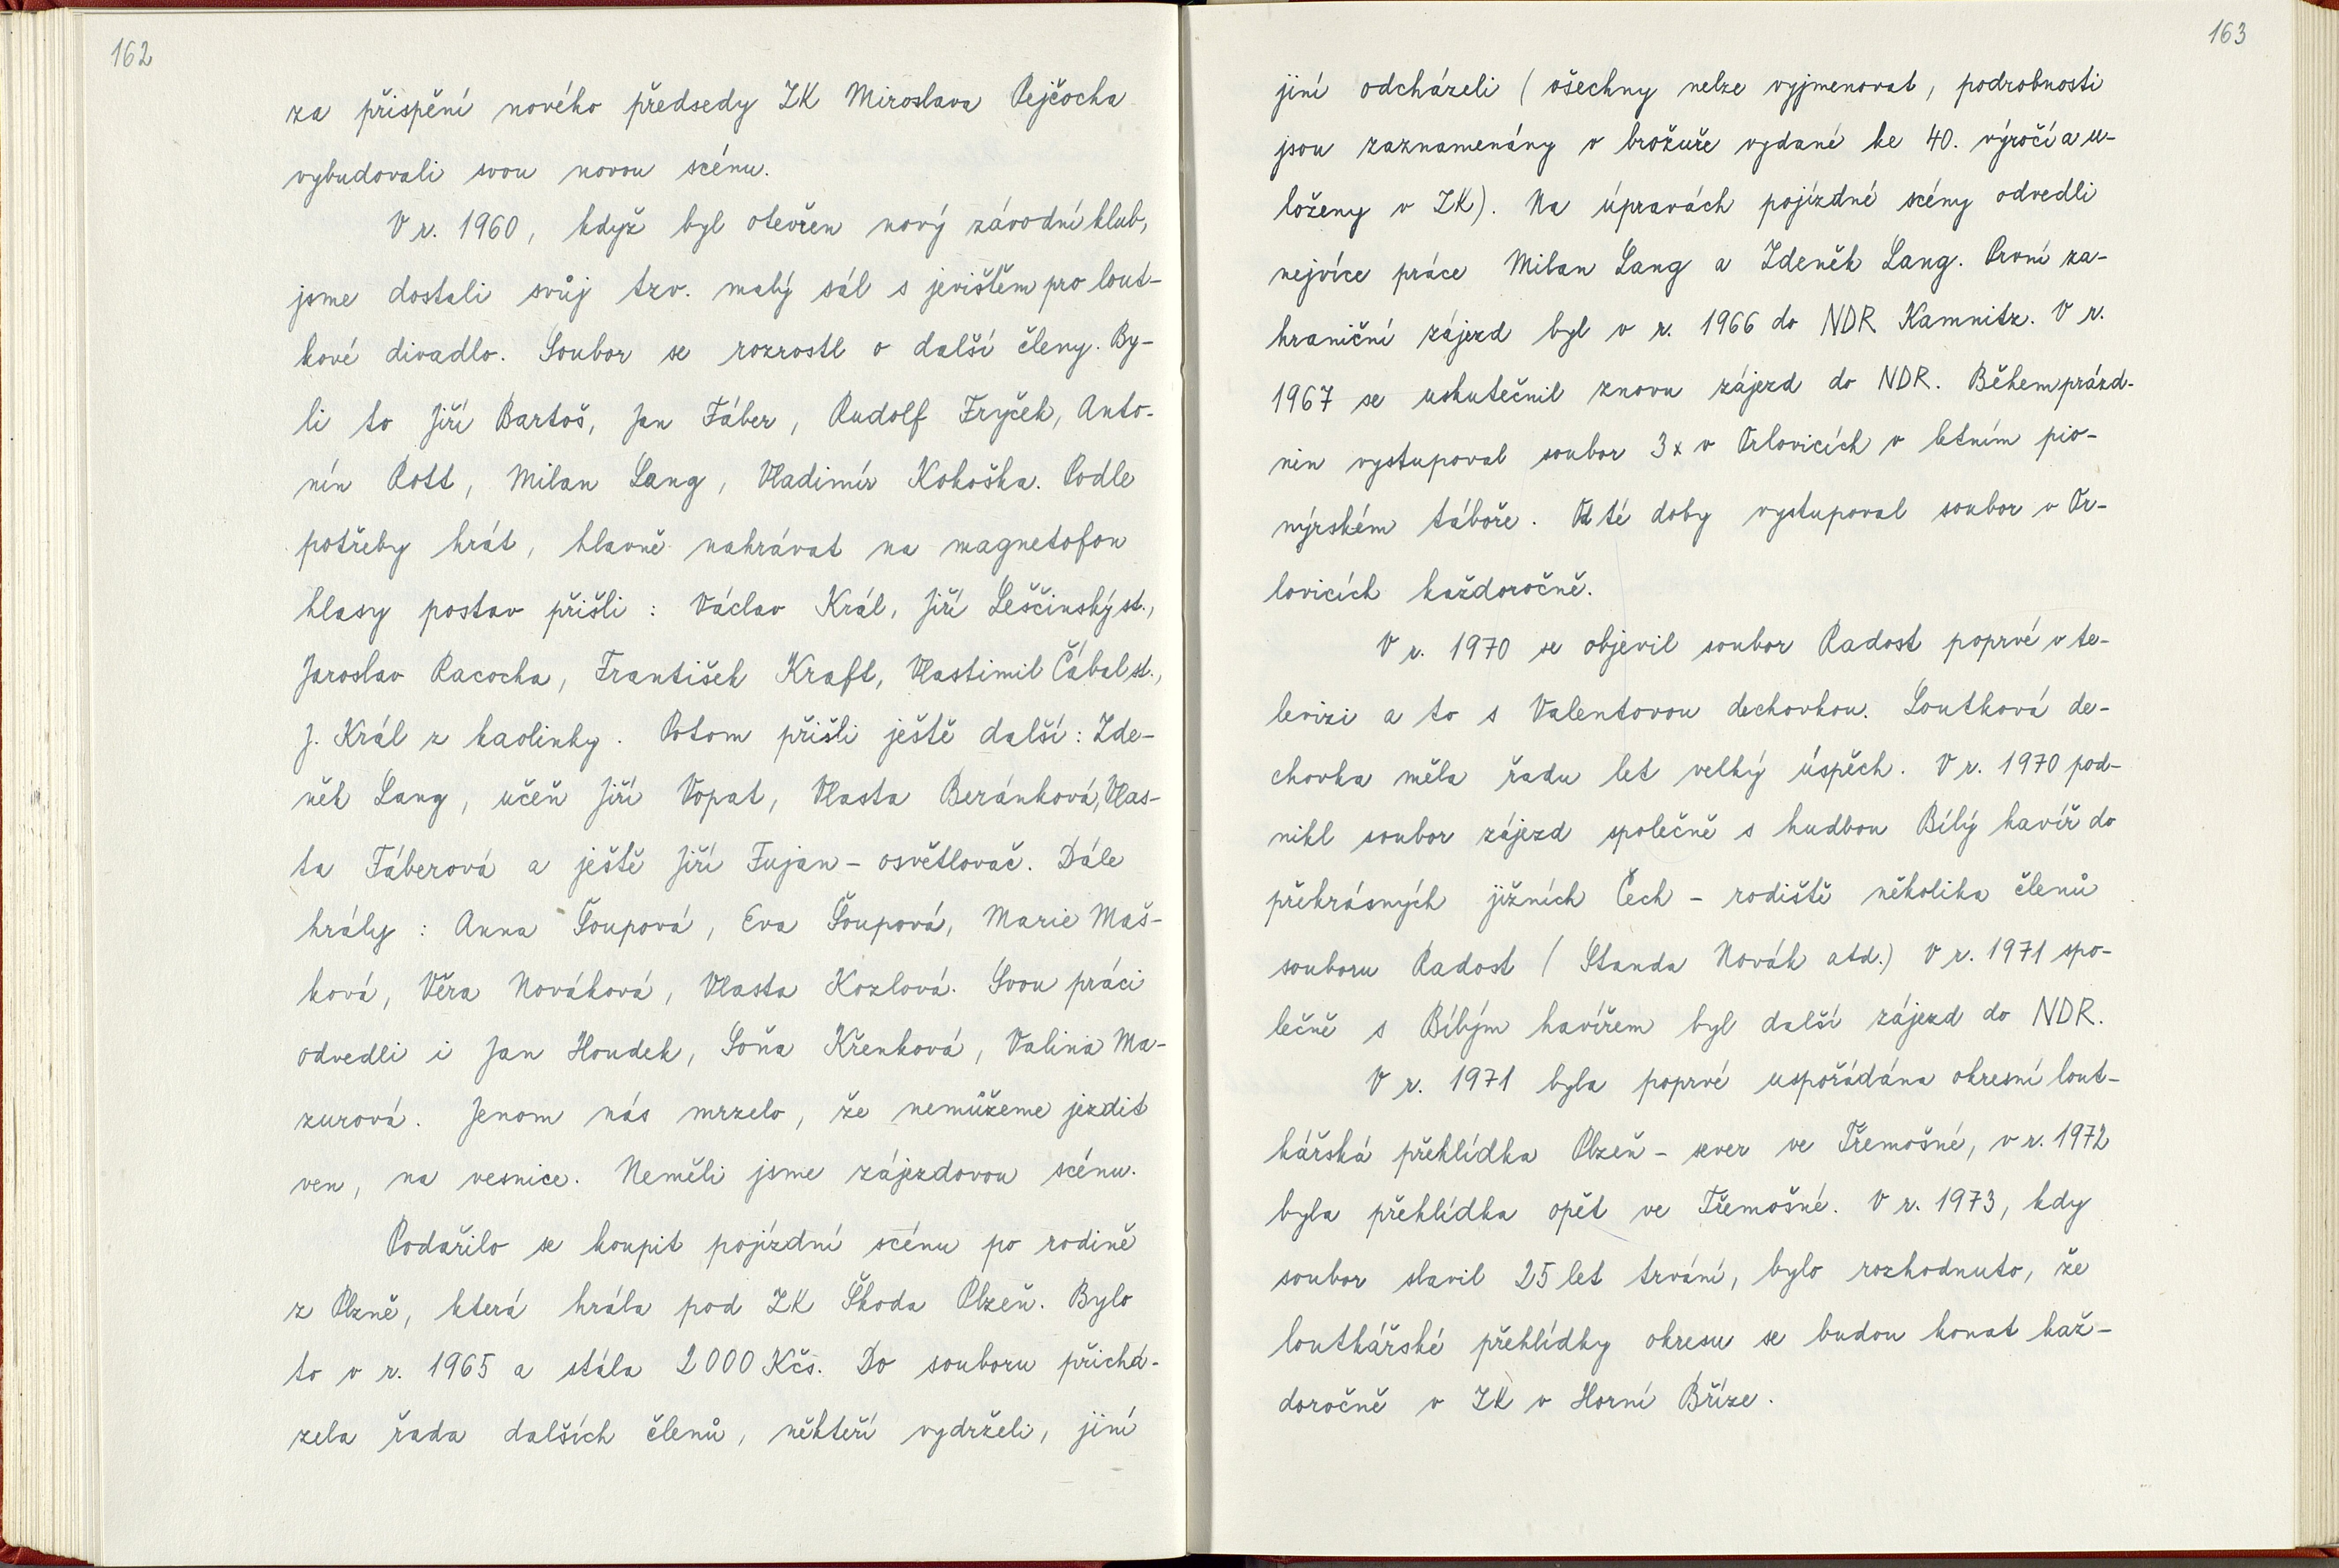 162
za přispění nového předsedy ZK Miroslava Pejčocha
vybudovali svou novou scénu.
V r. 1960, když byl otevřen nový závodní klub,
jsme dostali svůj tzv. malý sál s jevištěm pro lout-
kové divadlo. Soubor se rozrostl o další členy. By-
li to Jiří Bartoš, Jan Fáber, Rudolf Fryček, Anto-
nín Rott, Milan Lang, Vladimír Kohoška. Podle
potřeby hrát, hlavně nahrávat na magnetofon
hlasy postav přišli : Václav Král, Jiří Leščinský st.,
Jaroslav Racocha, František Kraft, Vlastimil Čábal st.,
J. Král z kaolinky. Potom přišli ještě další: Zde-
něk Lang, učeň Jiří Vopat, Vlasta Beránková, Vlas-
ta Fáberová a ještě Jiří Fujan - osvětlovač. Dále
hrály : Anna Šoupová, Eva Šoupová, Marie Maš-
ková, Věra Nováková, Vlasta Kozlová. Svou práci
odvedli i Jan Houdek, Soňa Křenková, Valina Ma-
zurová. Jenom nás mrzelo, že nemůžeme jezdit
ven, na vesnice. Neměli jsme zájezdovou scénu.
Podařilo se koupit pojízdní scénu po rodině
z Plzně, která hrála pod ZK Škoda Plzeň. Bylo
to v r. 1965 a stála 2000 Kčs. Do souboru přichá-
zela řada dalších členů, někteří vydrželi, jiní
163
jiní odcházeli (všechny nelze vyjmenovat, podrobnosti
jsou zaznamenány v brožuře vydané ke 40. výročí a u-
loženy v ZK). Na úpravách pojízdné scény odvedli
nejvíce práce Milan Lang a Zdeněk Lang. První za-
hraniční zájezd byl v r. 1966 do NDR Kamnitz. V r.
1967 se uskutečnil znovu zájezd do NDR. Během prázd-
nin vystupoval soubor 3x v Orlovicích v letním pio-
nýrském táboře. Od té doby vystupoval soubor v Or-
lovicích každoročně.
V r. 1970 se objevil soubor Radost poprvé v te-
levizi a to s Valentovou dechovkou. Loutková de-
chovka měla řadu let velký úspěch. V r. 1970 pod-
nikl soubor zájezd společně s hudbou Bílý havíř do
překrásných jižních Čech - rodiště několika členů
souboru Radost (Standa Novák atd.) V r. 1971 spo-
lečně s Bílým havířem byl další zájezd do NDR.
V r. 1971 byla poprvé uspořádána okresní lout-
kářská přehlídka Plzeň - sever ve Třemošné, v r. 1972
byla přehlídka opět ve Třemošné. V r. 1973, kdy
soubor slavil 25 let trvání, bylo rozhodnuto, že
loutkářské přehlídky okresu se budou konat kaž-
doročně v ZK v Horní Bříze.